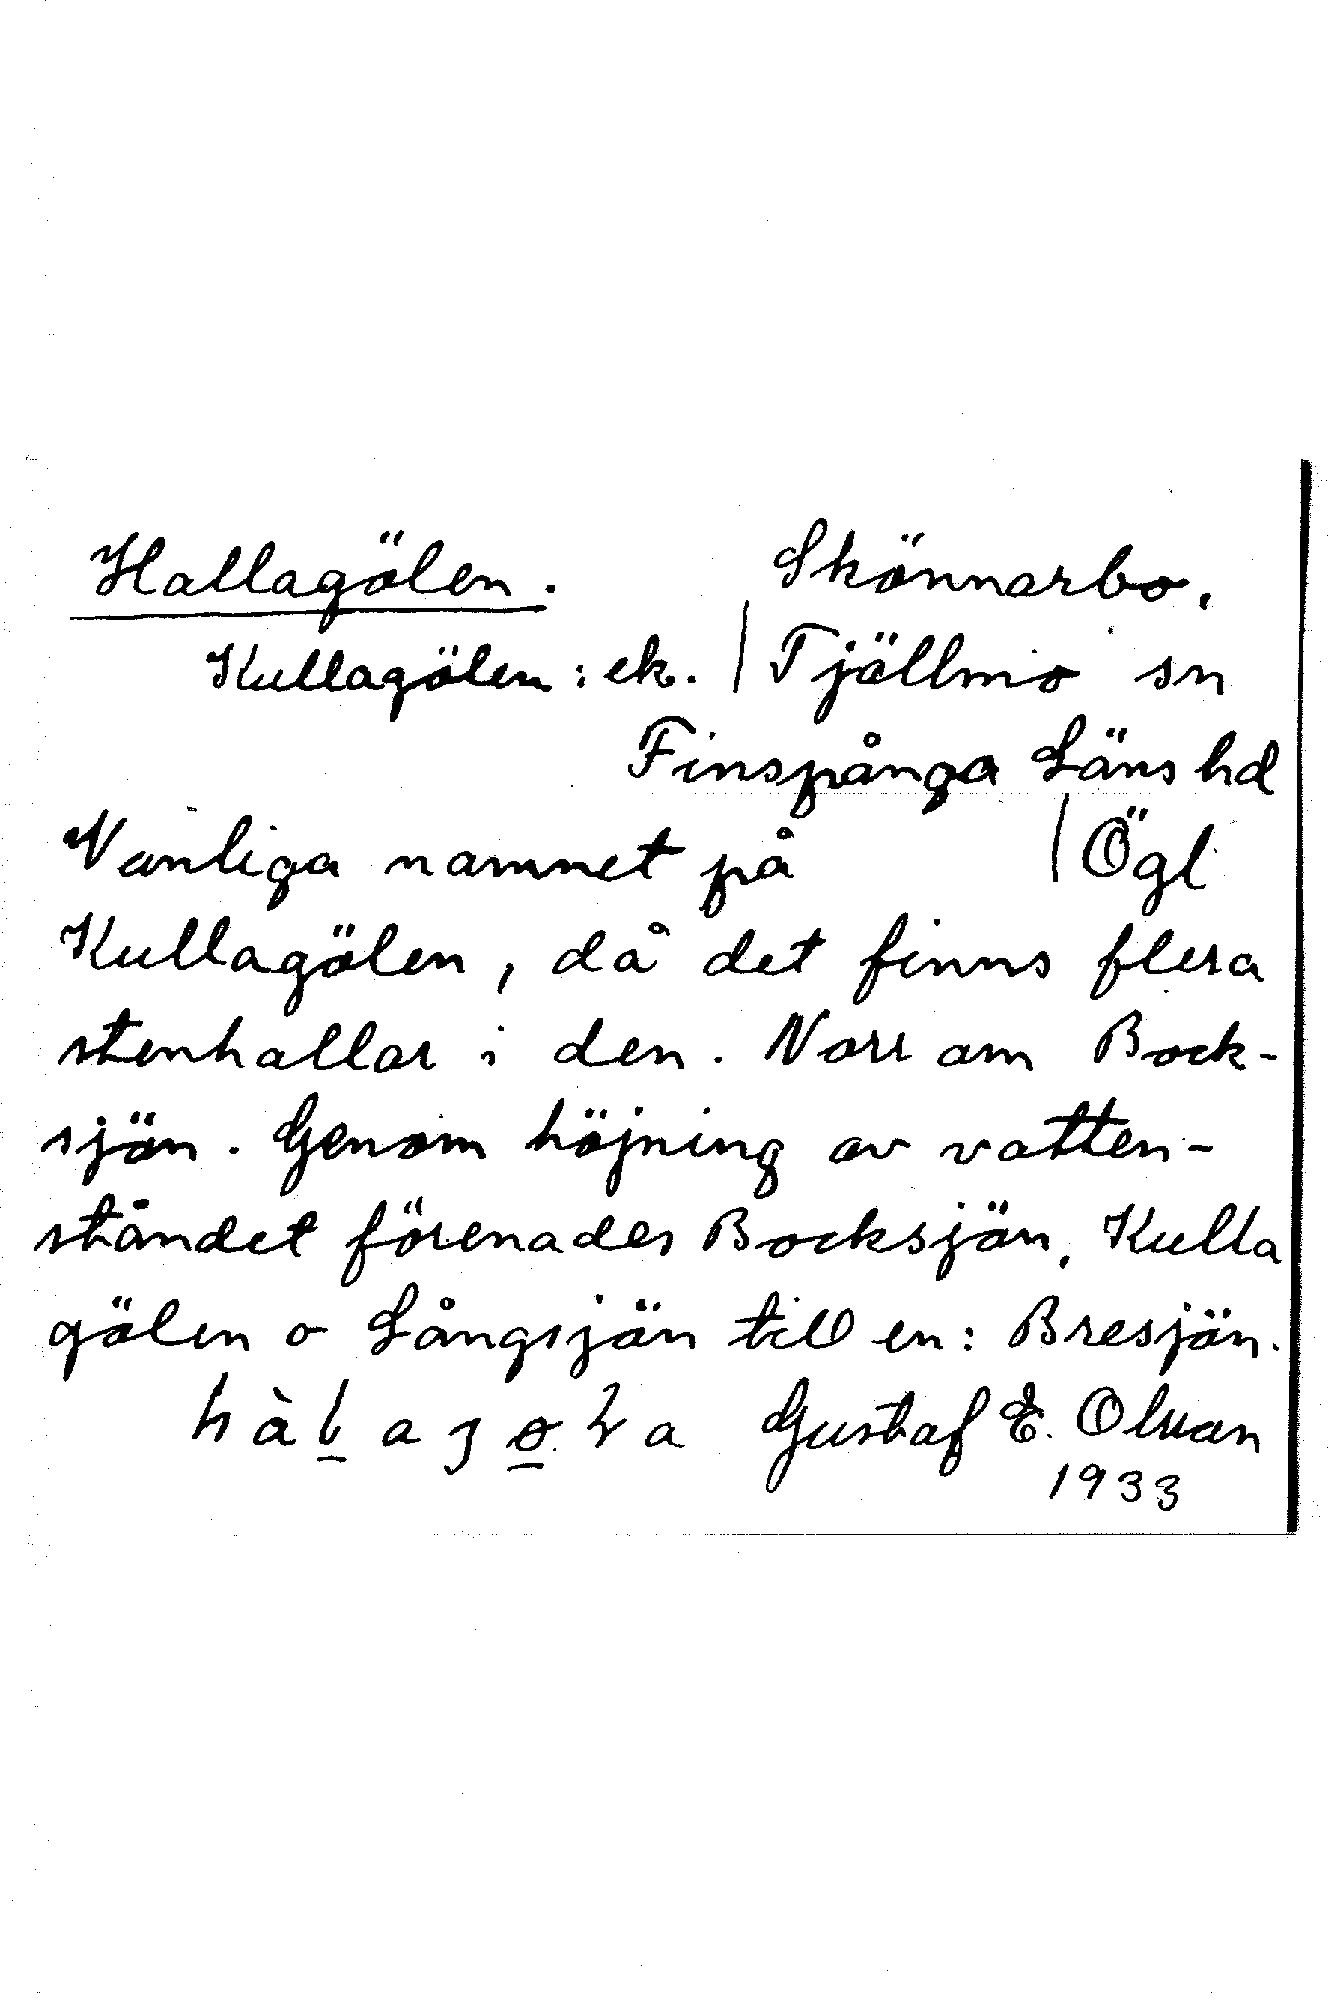 Hallagölen. Skönnarbo,
Kullagölen : ek. | Tjällmo sn
Finspånga Läns hd
Vanliga namnet på | Ögl
Kullagölen, då det finns flera
stenhallar i den. Norr om Bock-
sjön. Genom höjning av vatten-
ståndet förenades Bocksjön, Kulla
gölen o Långsjön till en: Bresjön.
Gustaf E. Olvan
1933